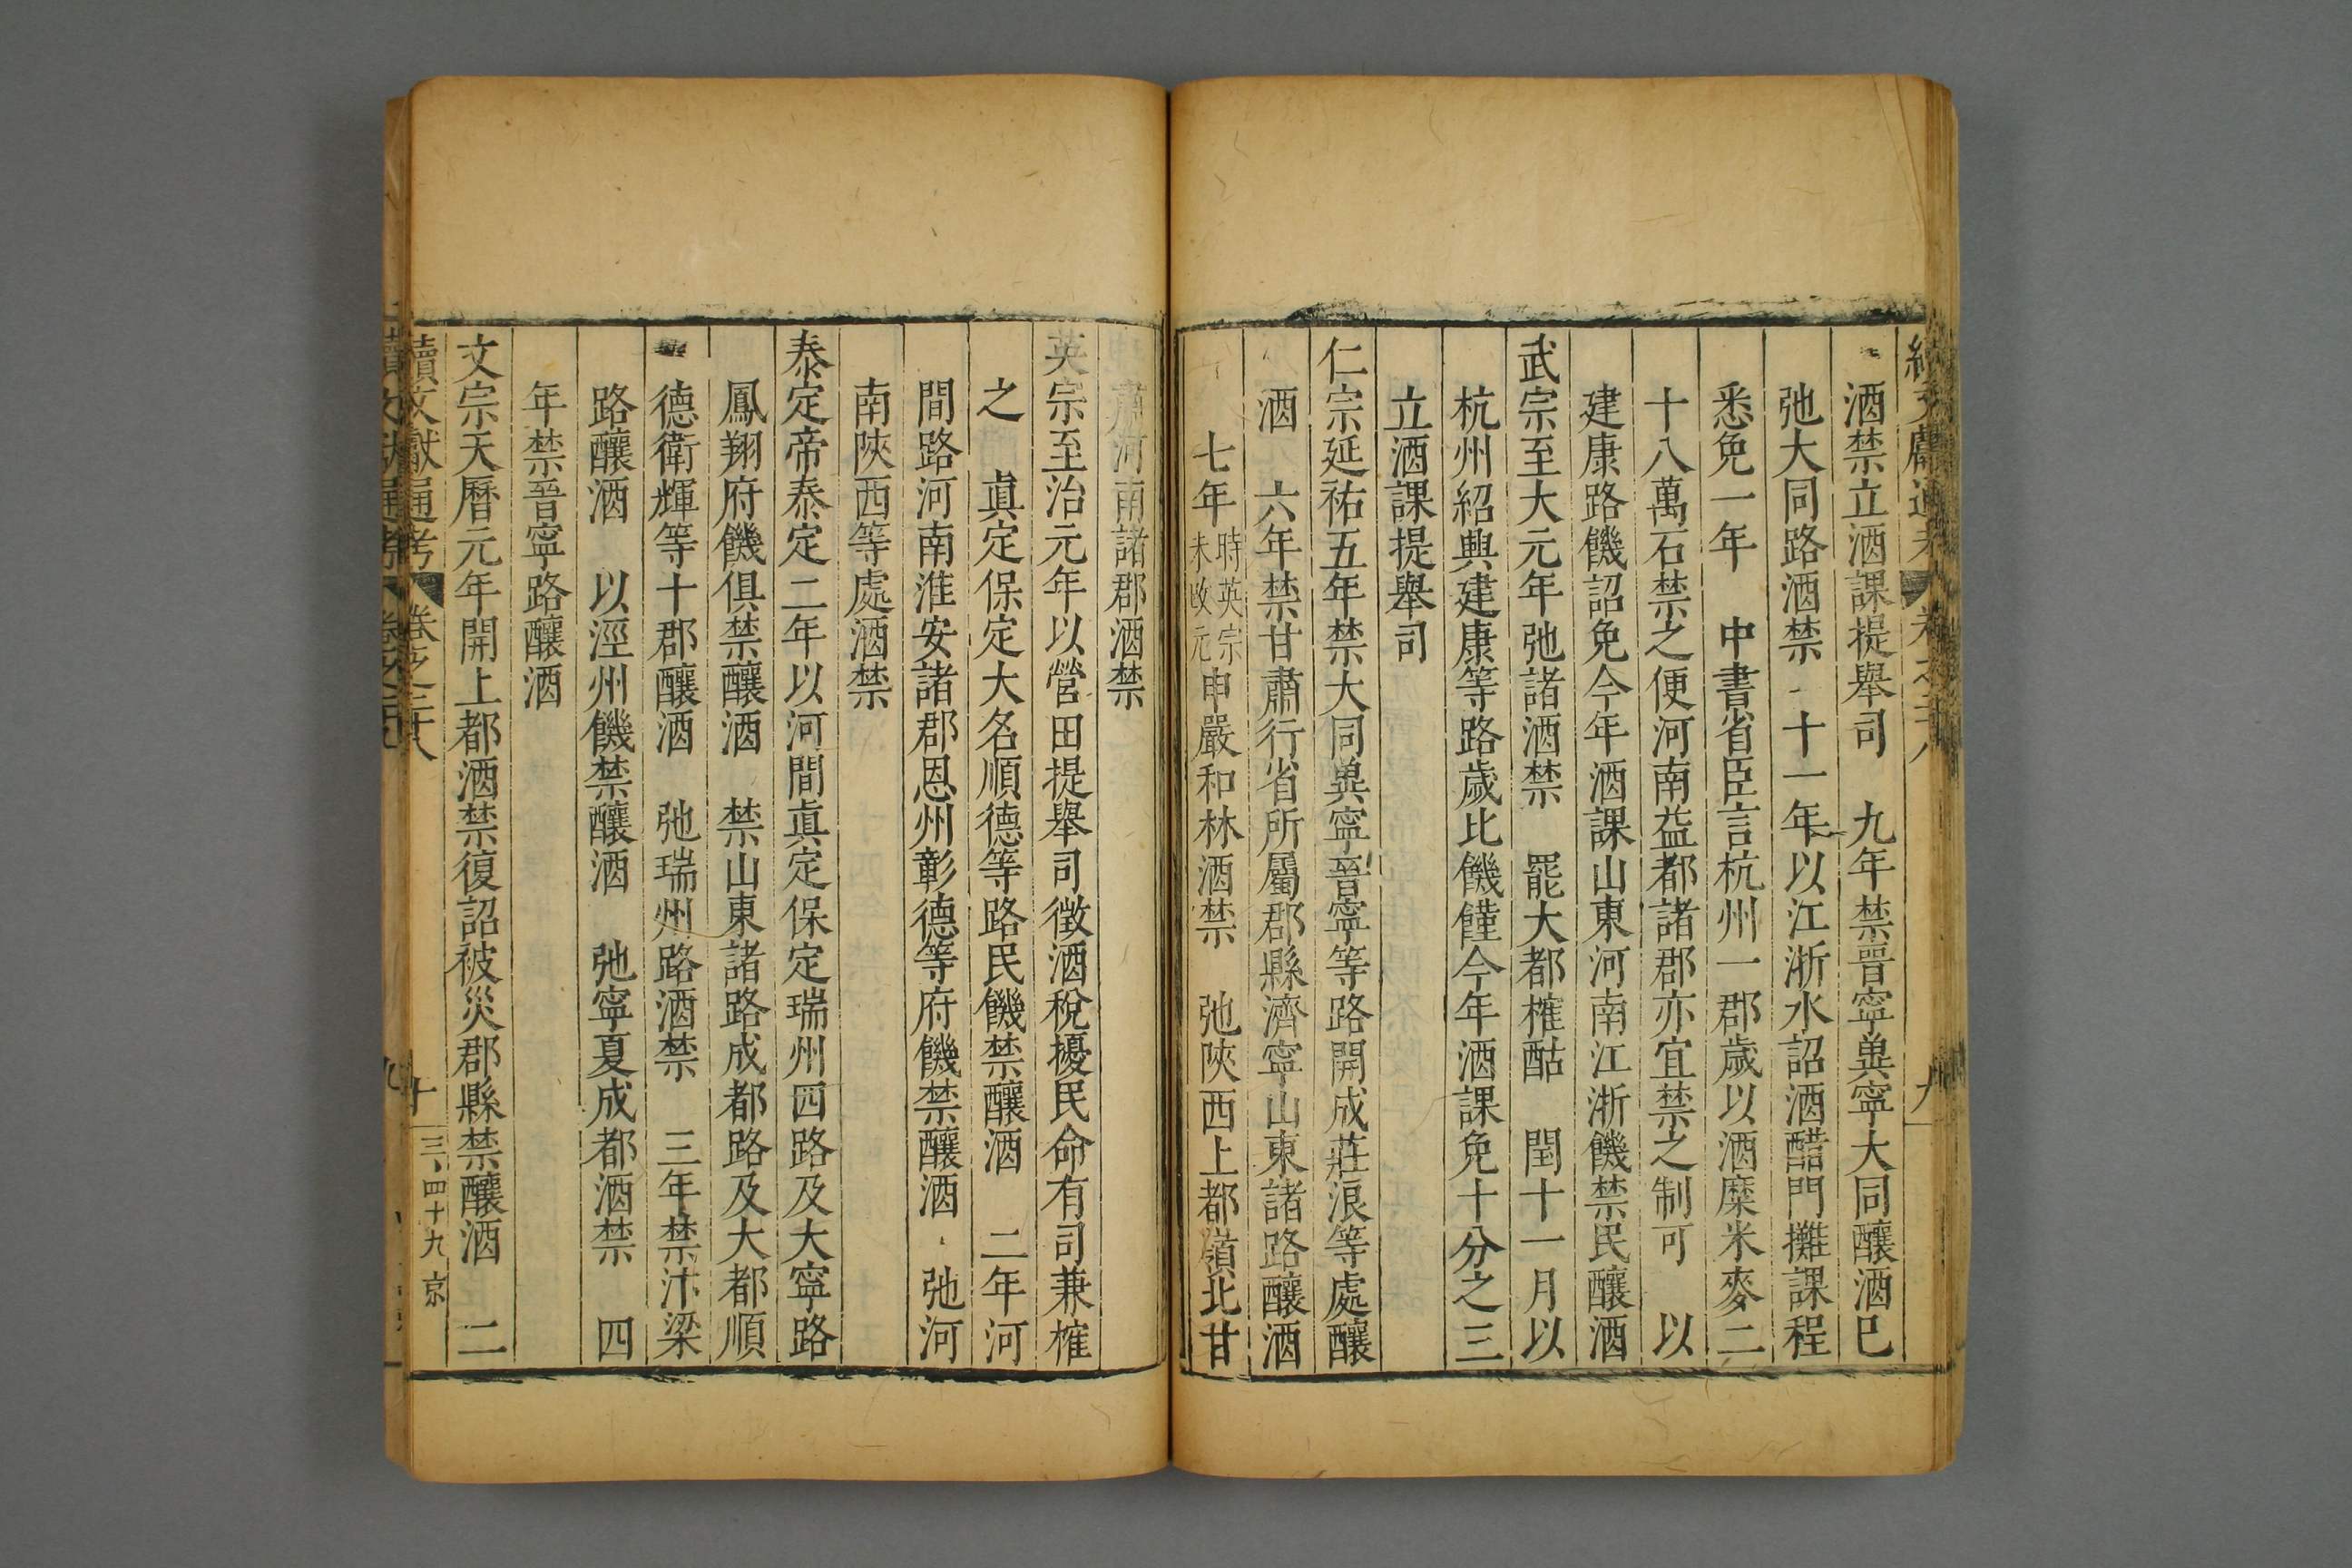 續文獻通考 卷之二十八 九
酒禁立酒課提舉司 九年禁晉寧兾寧大同釀酒巳
弛大同路酒禁 十一年以江浙水詔酒醋門攤課程
悉免一年 中書省臣言杭州一郡歲以酒糜米麥二
十八萬石禁之便河南益都諸郡亦宜禁之制可 以
建康路饑詔免今年酒課山東河南江浙饑禁民釀酒
武宗至大元年弛諸酒禁 罷大都榷酤 閏十一月以
杭州紹興建康等路歲比饑饉今年酒課免十分之三
立酒課提舉司
仁宗延祐五年禁大同兾寧晉寧等路開成莊浪等處釀
酒 六年禁甘肅行省所屬郡縣濟寧山東諸路釀酒
七年時英宗未改元申嚴和林酒禁 弛陜西上都嶺北甘
肅河南諸郡酒禁
英宗至治元年以營田提舉司徵酒稅擾民命有司兼榷
之 眞定保定大名順德等路民饑禁釀酒 二年河
間路河南淮安諸郡恩州彰德等府饑禁釀酒 弛河
南陜西等處酒禁
泰定帝泰定二年以河間眞定保定瑞州四路及大寧路
鳳翔府饑俱禁釀酒 禁山東諸路成都路及大都順
德衛輝等十郡釀酒 弛瑞州路酒禁 三年禁汴梁
路釀酒 以涇州饑禁釀酒 弛寧夏成都酒禁 四
年禁晉寧路釀酒
文宗天曆元年開上都酒禁復詔被災郡縣禁釀酒 二
續文獻通考 卷之二十八 十 三、四十九 京